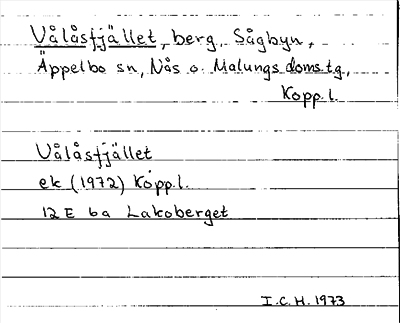 Vålåsfjället, berg, Sågbyn,
Äppelbo sn, Nås o. Malungs doms.tg.,
Kopp.l.
Vålåsfjället
ek (1972) Kopp.l.
12 E 6a Lakoberget
I.C.H. 1973